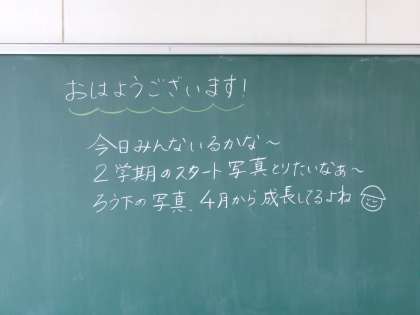 おはようございます!
今日みんないるかな～
2学期のスタート写真とりたいなぁ～
ろう下の写真、4月から成長してるよね